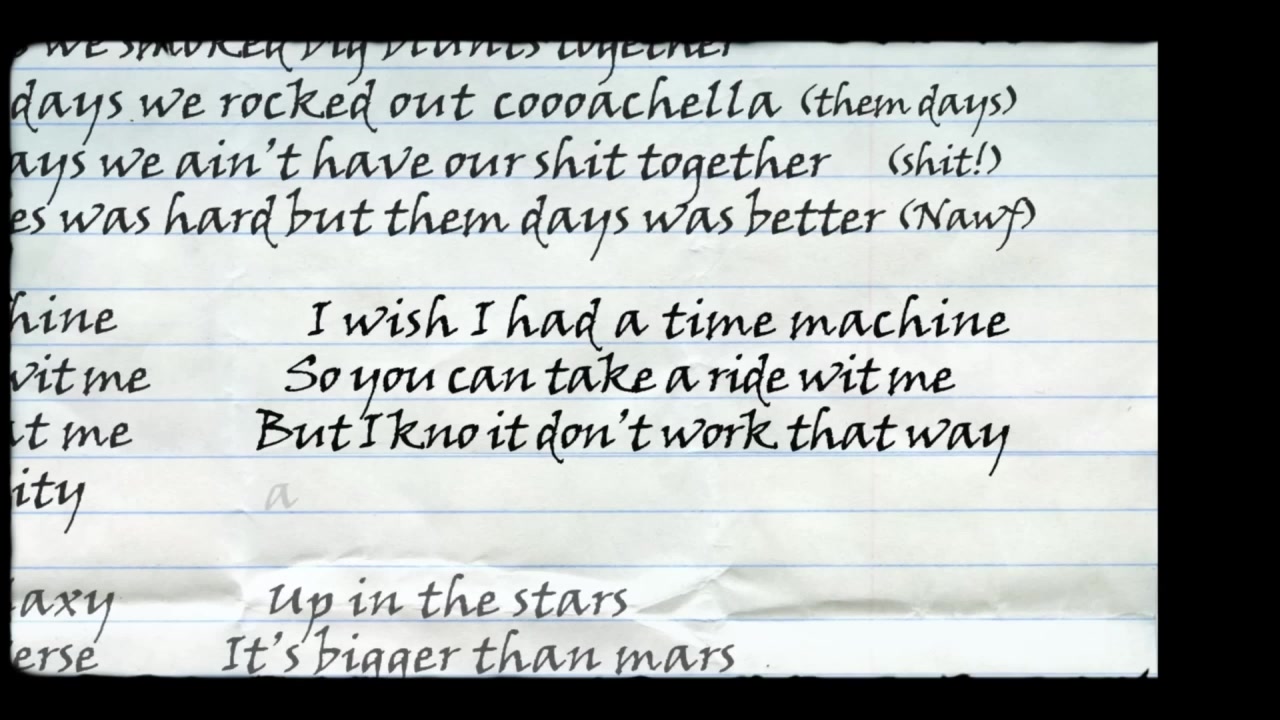 we smoked big blunts together
days we rocked out coooachella (them days)
ays we ain't have our shit together (shit!)
es was hard but them days was better (Nawf)
hine I wish I had a time machine
wit me So you can take a ride wit me
t me But I kno it don't work that way
ity a
axy Up in the stars
erse It's bigger than mars